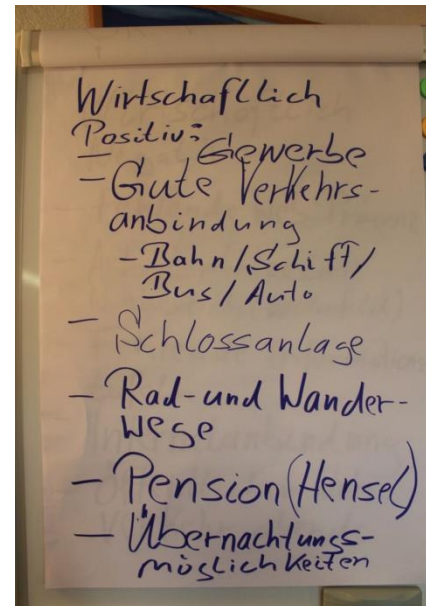 Wirtschafllich
Positiv:
- Gewerbe
- Gute Verkehrs-
anbindung
- Bahn/Schiff/
Bus/Auto
- Schlossanlage
- Rad- und Wander-
wege
- Pension (Hensel)
- Übernachtungs-
möglichkeiten